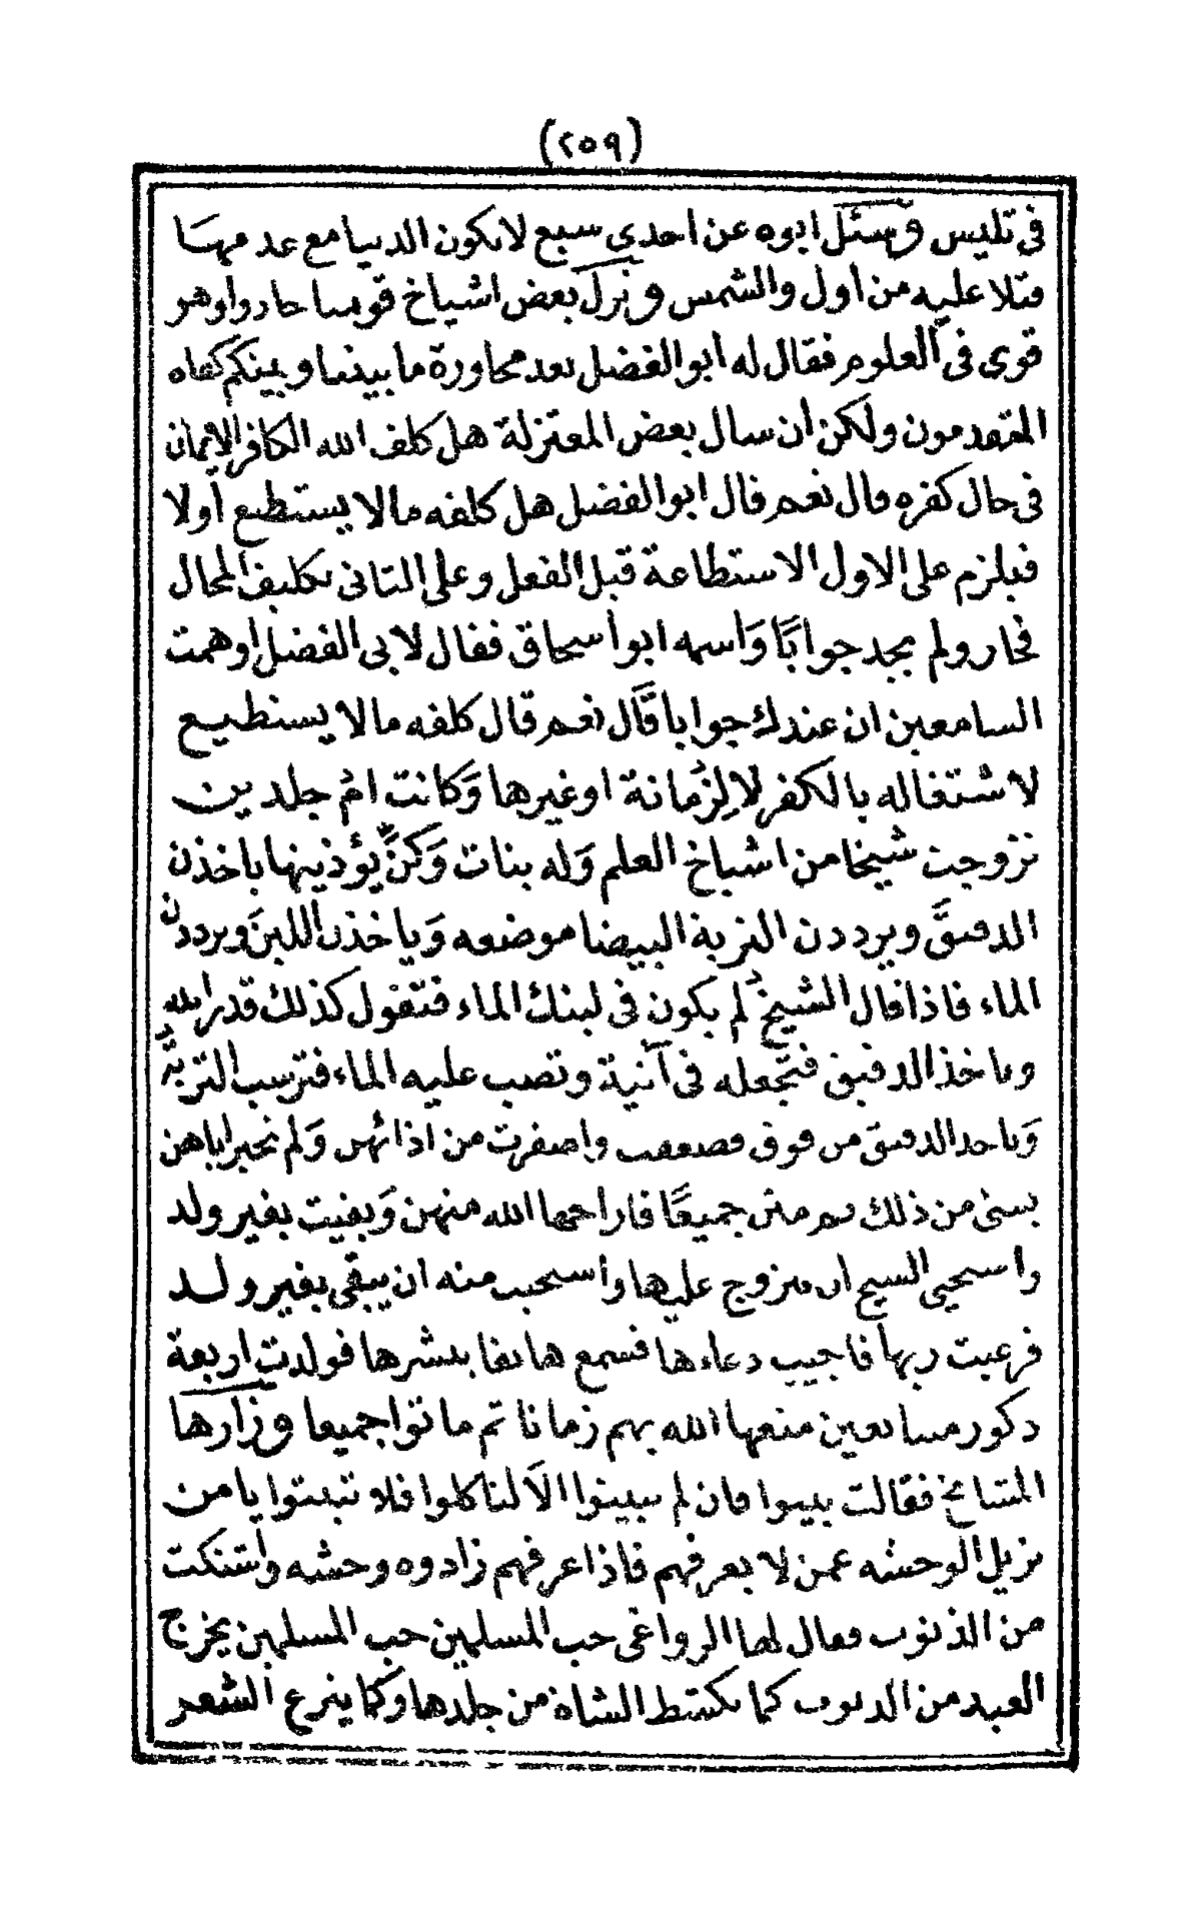 (٢٥٩)
فى تليس وسئل ابوه عن احدى سبع لا تكون الدنيا مع عدمها
فتلا عليه من اول والشمس ونزل بعض اشياخ قومنا جادوا وهو
قوى فى العلوم فقال له ابو الفضل بعد محاورة ما بيننا وبينكم كفاه
المتقدمون ولكن أن سال بعض المعتزلة هل كلف الله الكافر الايمان
فى حال كفره قال نعم قال ابو الفضل هل كلفه مالا يستطيع أولا
فيلزم على الاول الاستطاعة قبل الفعل وعلى الثانى تكليف المحال
فحار ولم يجد جوابًا وَاسمه ابو اسحاق فقال لابى الفضل اوهمت
السامعين ان عندك جوابا قال نعم قال كلفه مالا يستطيع
لاشتغاله بالكفر لا لِزمانة او غيرها وَكانت ام جلدين
تزوجت شيخا من اشياخ العلم وَله بنات وَكنَّ يؤذينها ياخذن
الدقيقَ ويرددن التربة البيضا موضعه وَياخذن اللبنَ ويرددن
الماء فاذا قال الشيخ لم يكون فى لبنك الماء فتقول كذلك قدر الله
وتاخذ الدقيق فتجعله فى آنية وتصب عليه الماء فترسب التربة
وَتاخذ الدقيق من فوق فضعفت واصفرت من اذائهن وَلم تخبر اباهن
بشئ من ذلك ثم متن جميعًا فاراحها الله منهن وَبقيت بغير ولد
واستحيى الشيخ ان يتزوج عليها واستحيت منه ان يبقى بغير ولد
فرغبت ربها فاجيب دعاءها فسمع هاتفا يبشرها فولدت اربعة
ذكور متتابعين متعها الله بهم زمانا ثم ماتوا جميعا وزارها
المشايخ فقالت بيتوا فان لم تبيتوا الا لتاكلوا فلا تبيتوا يا من
يزيل الوحشه عمن لا يعرفهم فاذا عرفهم زادوه وحشه واشتكت
من الذنوب فقال لها الرواغى حب المسلمين حب المسلمين يخرج
العبد من الذنوب كما تكشط الشاة من جلدها وكما ينزع الشعر